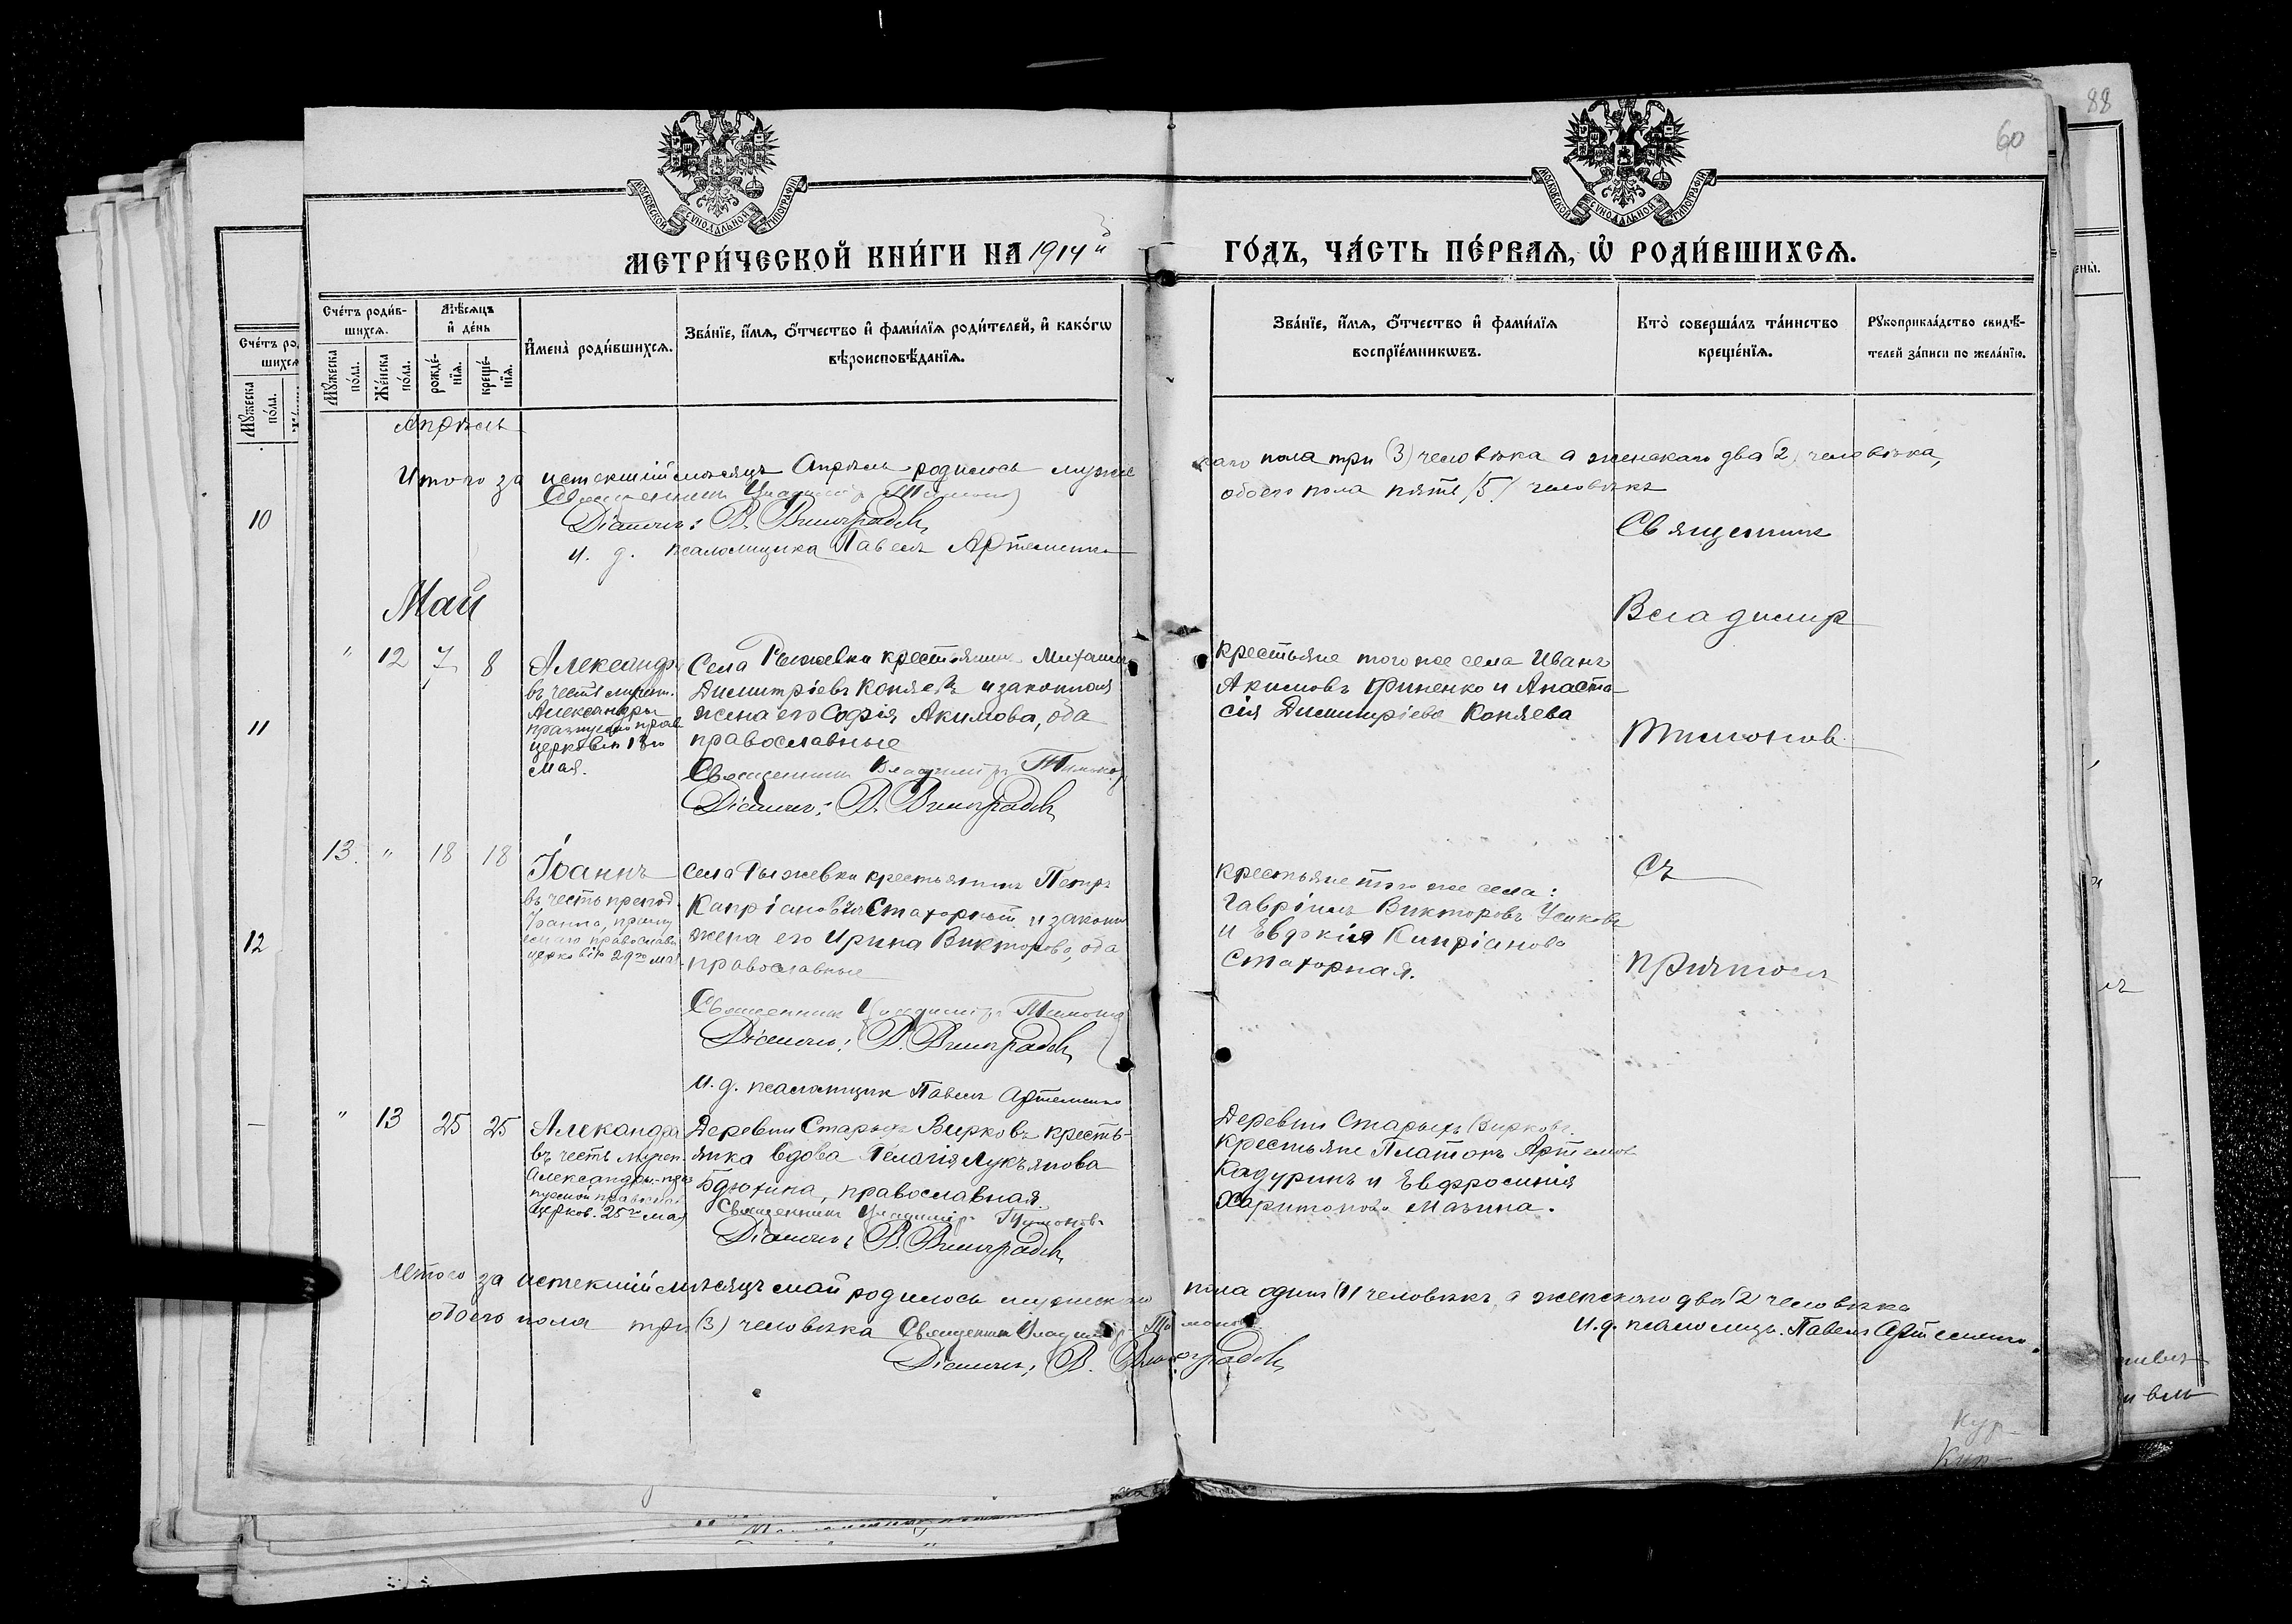 88
60
МОСКОВСКОЙ СѴНОДАЛЬНОЙ ТИПОГРАФІИ
МОСКОВСКОЙ СѴНОДАЛЬНОЙ ТИПОГРАФІИ
МЕТРИ́ЧЕСКОЙ КНИ́ГИ НА 1914й
ГО́ДЪ, ЧА́СТЬ ПЕ́РВАѦ, Ѡ҆ РОДИ́ВШИХСѦ.
Сче́тъ роди́в-
шихсѧ.
Мꙋ́жеска по́ла.
Же́нска по́ла.
Мѣ́сѧцъ
и҆ де́нь
рожде́-
нїѧ.
креще́-
нїѧ.
И҆мена̀ роди́вшихсѧ.
Зва́нїе, и҆́мѧ, ѻ҆́тчество и҆ фами́лїѧ роди́телей, и҆ како́гѡ
вѣроисповѣ́данїѧ.
Зва́нїе, и҆́мѧ, ѻ҆́тчество и҆ фами́лїѧ
воспрїе́мникѡвъ.
Кто̀ соверша́лъ та́инство
креще́нїѧ.
Рꙋкоприкла́дство свидѣ́-
телей за́писи по жела́нїю.
Апрѣль
Итого за истекшій мѣсяцъ Апрѣль родилось муже
скаго пола три (3) человѣка а женскаго два (2) человѣка,
обоего пола пять (5) человѣкъ
Священникъ Владиміръ Тимоновъ
Діаконъ: В. Виноградовъ
и. д. псаломщика Павелъ Артеменко
Священникъ
Владимир
Тимонов
съ
причтомъ
Май
" 12 7 8
Александра
въ честь мучен.
Александры
празнуемо прав
церковію 18го
мая.
Села Рыжевки крестьянинъ Михаилъ
Димитріевъ Коняевъ и законная
жена его Софія Акимова, оба
православные
Священникъ Владиміръ Тимонов
Діаконъ: В. Виноградовъ
крестьяне того же села Иванъ
Акимовъ Финенко и Анаста-
сія Димитріева Коняева
13 " 18 18
Іоаннъ
въ честь препод.
Іоанна, празну
емаго православн.
церковію 29го мая
Села Рыжевки крестьянинъ Петръ
Капріановъ Стахорный и законн
жена его Ирина Викторова, оба
православные
Священникъ Владиміръ Тимонов
Діаконъ: В. Виноградовъ
И. д. псаломщик Павелъ Артеменко
крестьяне того же села:
Гавріилъ Викторовъ Усиковъ
и Евдокія Кипріанова
Стахорная.
" 13 25 25
Алекандра
въ честь мучен.
Александры праз
церков. 25го мая
Деревни Старыхъ Вирковъ кресть-
янка вдова Пелагія Лукъянова
Бдюхина, православная
Священникъ Владиміръ Тимоновъ
Діаконъ: В. Виноградовъ
Деревни Старыхъ Вирковъ
крестьяне Платонъ Артемов
Кадуринъ и Евфросинія
Харитонова Мазина.
Итого за истекшій мѣсяцъ май родилось мужскаго
пола одинъ (1) человѣкъ, а женскаго два (2) человѣка
обоего пола три (3) человѣка Священникъ Владиміръ Тимонов
И. д. псаломщ. Павелъ Артеменко.
Діаконъ: В. Виноградовъ
Кур
Кир-
10
11
12